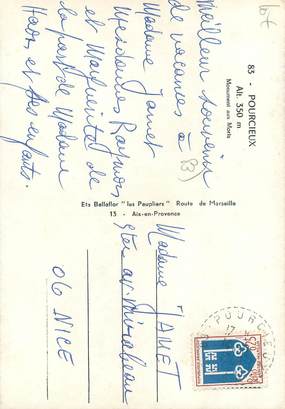 83 - POURCIEUX
Alt. 350 m
Monument aux Morts
Meilleur souvenir
de vacances à (83)
Madame Janet
Mesdames Raymos
et Marguerite de
la part de Madame
et ses enfants.
Ets Bellaflor "les Peupliers" Route de Marseille
13 - Aix-en-Provence
Madame JANET
av. Mirabeau
06 NICE
POURCIEUX
17